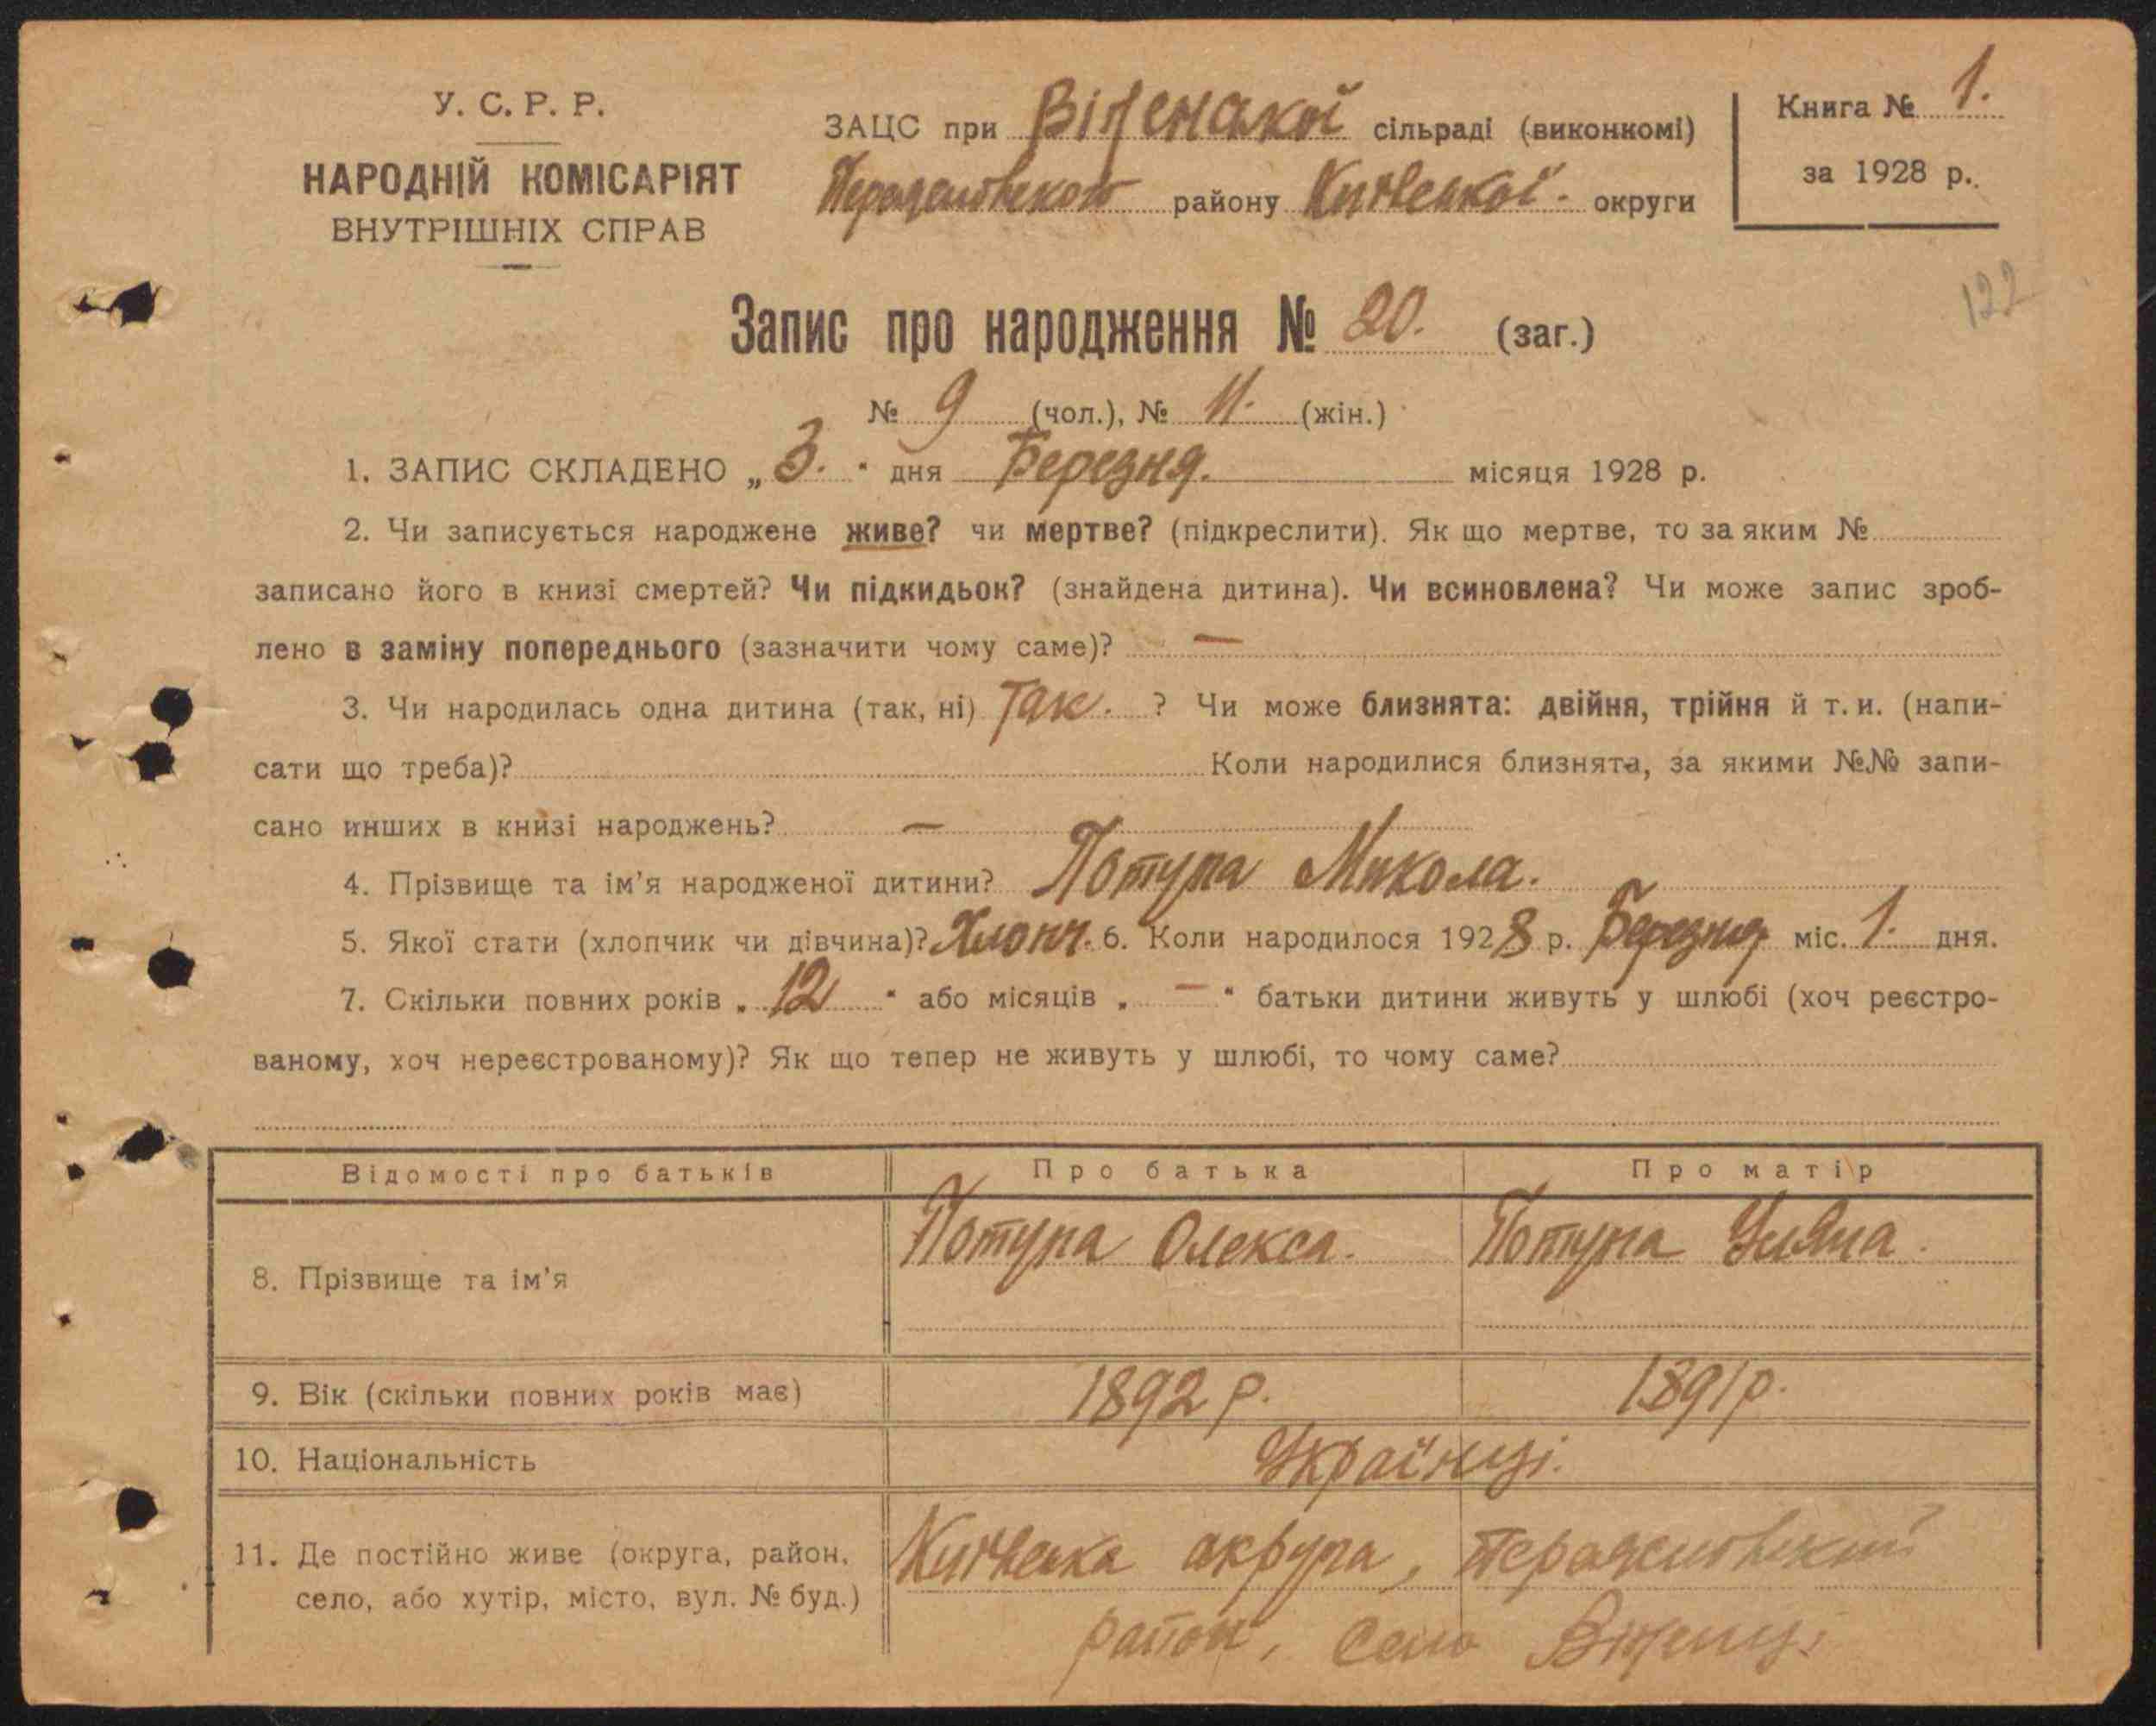 У. С. Р. Р.
НАРОДНІЙ КОМІСАРІЯТ
ВНУТРІШНІХ СПРАВ
ЗАЦС при сільраді (виконкомі)
району Київської округи
Книга № 1.
за 1928 р.
122
Запис про народження № 20. (заг.)
№ 9 (чол.), № 11. (жін.)
1. ЗАПИС СКЛАДЕНО „3." дня Березня. місяця 1928 р.
2. Чи записується народжене живе? чи мертве? (підкреслити). Як що мертве, то за яким №
записано його в книзі смертей? Чи підкидьок? (знайдена дитина). Чи всиновлена? Чи може запис зроб-
лено в заміну попереднього (зазначити чому саме)? —
3. Чи народилась одна дитина (так, ні) Так. ? Чи може близнята: двійня, трійня й т. и. (напи-
сати що треба)? Коли народилися близнята, за якими №№ запи-
сано инших в книзі народжень? —
4. Прізвище та ім'я народженої дитини? Потура Микола.
5. Якої стати (хлопчик чи дівчина)? Хлопч. 6. Коли народилося 1928 р. Березня міс. 1. дня.
7. Скільки повних років „12" або місяців „—" батьки дитини живуть у шлюбі (хоч реєстро-
ваному, хоч нереєстрованому)? Як що тепер не живуть у шлюбі, то чому саме?
Відомості про батьків Про батька Про матір
8. Прізвище та ім'я Потура Олекса. Потура Уляна.
9. Вік (скільки повних років має) 1892 р. 1891 р.
10. Національність Українці.
11. Де постійно живе (округа, район, Київська округа,
село, або хутір, місто, вул. № буд.) район, село